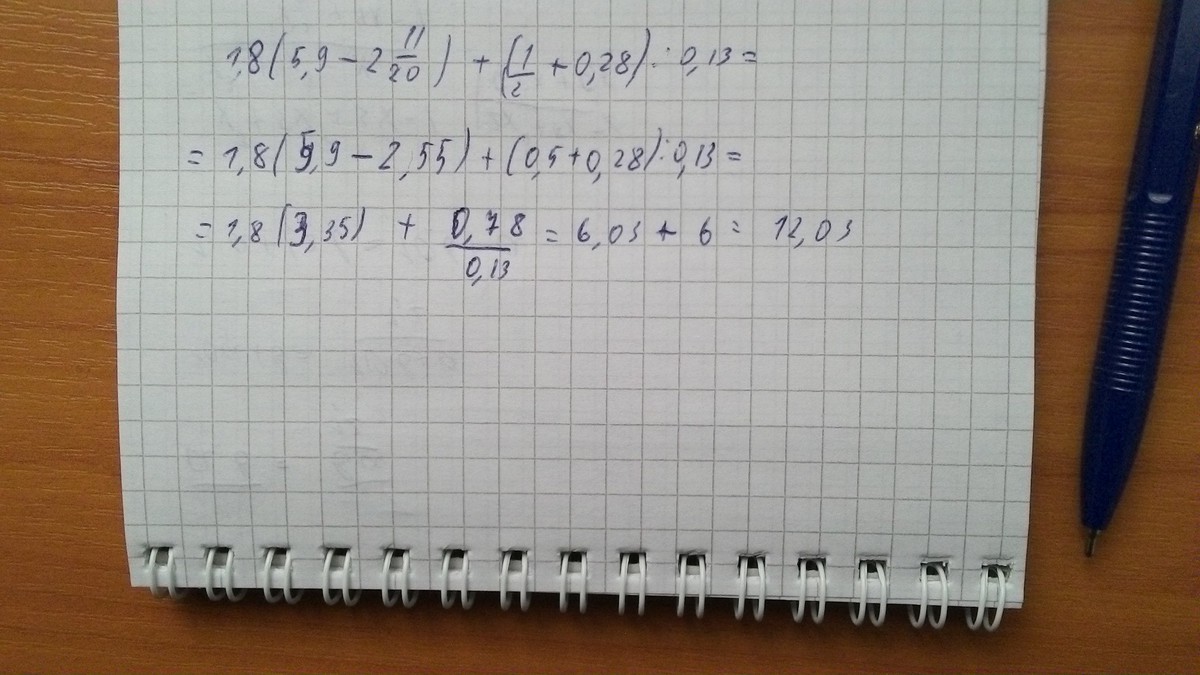 1,8(5,9 - 2 11/20) + (1/2 + 0,28) : 0,13 =
= 1,8(5,9 - 2,55) + (0,5 + 0,28) : 0,13 =
= 1,8(3,35) + 0,78/0,13 = 6,03 + 6 = 12,03